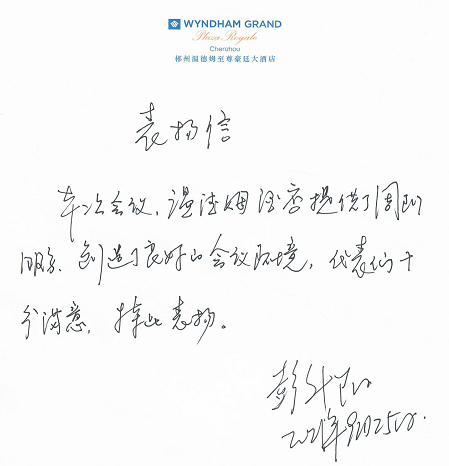 WYNDHAM GRAND
Plaza Royale
Chenzhou
郴州温德姆至尊豪廷大酒店
表扬信
本次会议，温德姆酒店提供了周到
服务，创造了良好的会议环境，代表们十
分满意，特此表扬。
彭
2021年9月25日.